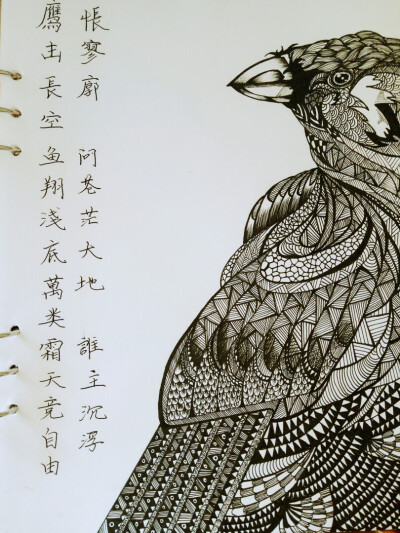 鷹击長空鱼翔淺底萬类霜天竞自由
悵寥廓 问苍茫大地 誰主沉浮